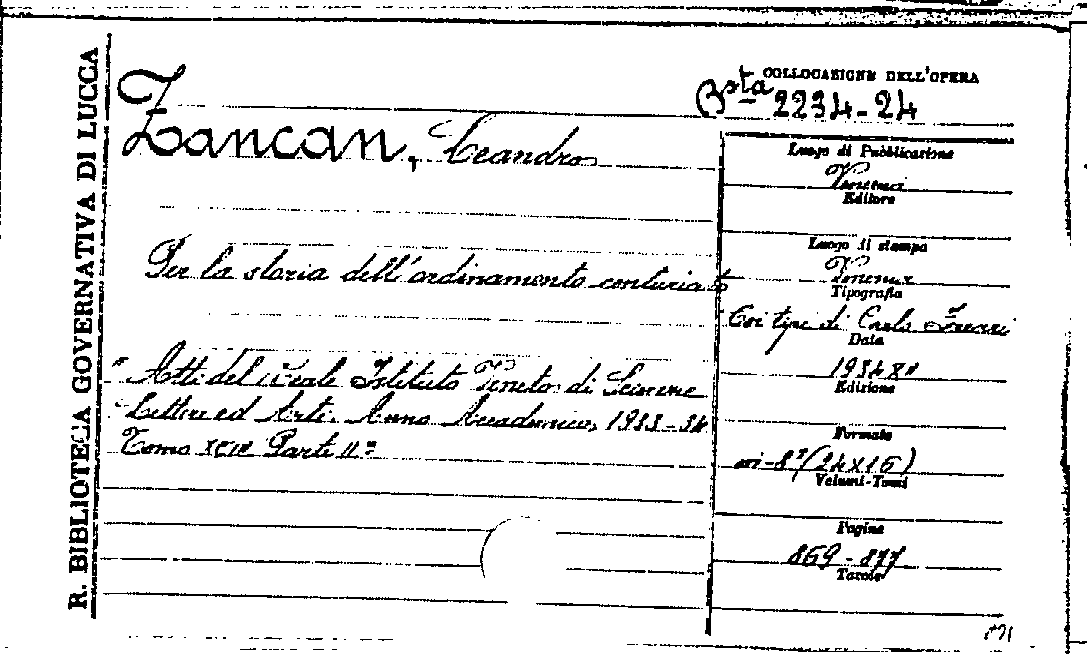 R. BIBLIOTECA GOVERNATIVA DI LUCCA
COLLOCAZIONE DELL'OPERA
Bsta 2234-24
Zancan, Leandro
Per la storia dell'ordinamento centuriato
"Atti del Reale Istituto Veneto di Scienze
Lettere ed Arti. Anno Accademico, 1933-34
Tomo XCIII Parte IIª
Luogo di Pubblicazione
Venezia
Editore
Luogo di stampa
Venezia
Tipografia
Coi tipi di Carlo Ferrari
Data
1934 XII
Edizione
Formato
in-8° (24x16)
Volumi-Tomi
Pagine
869-877
Tavole